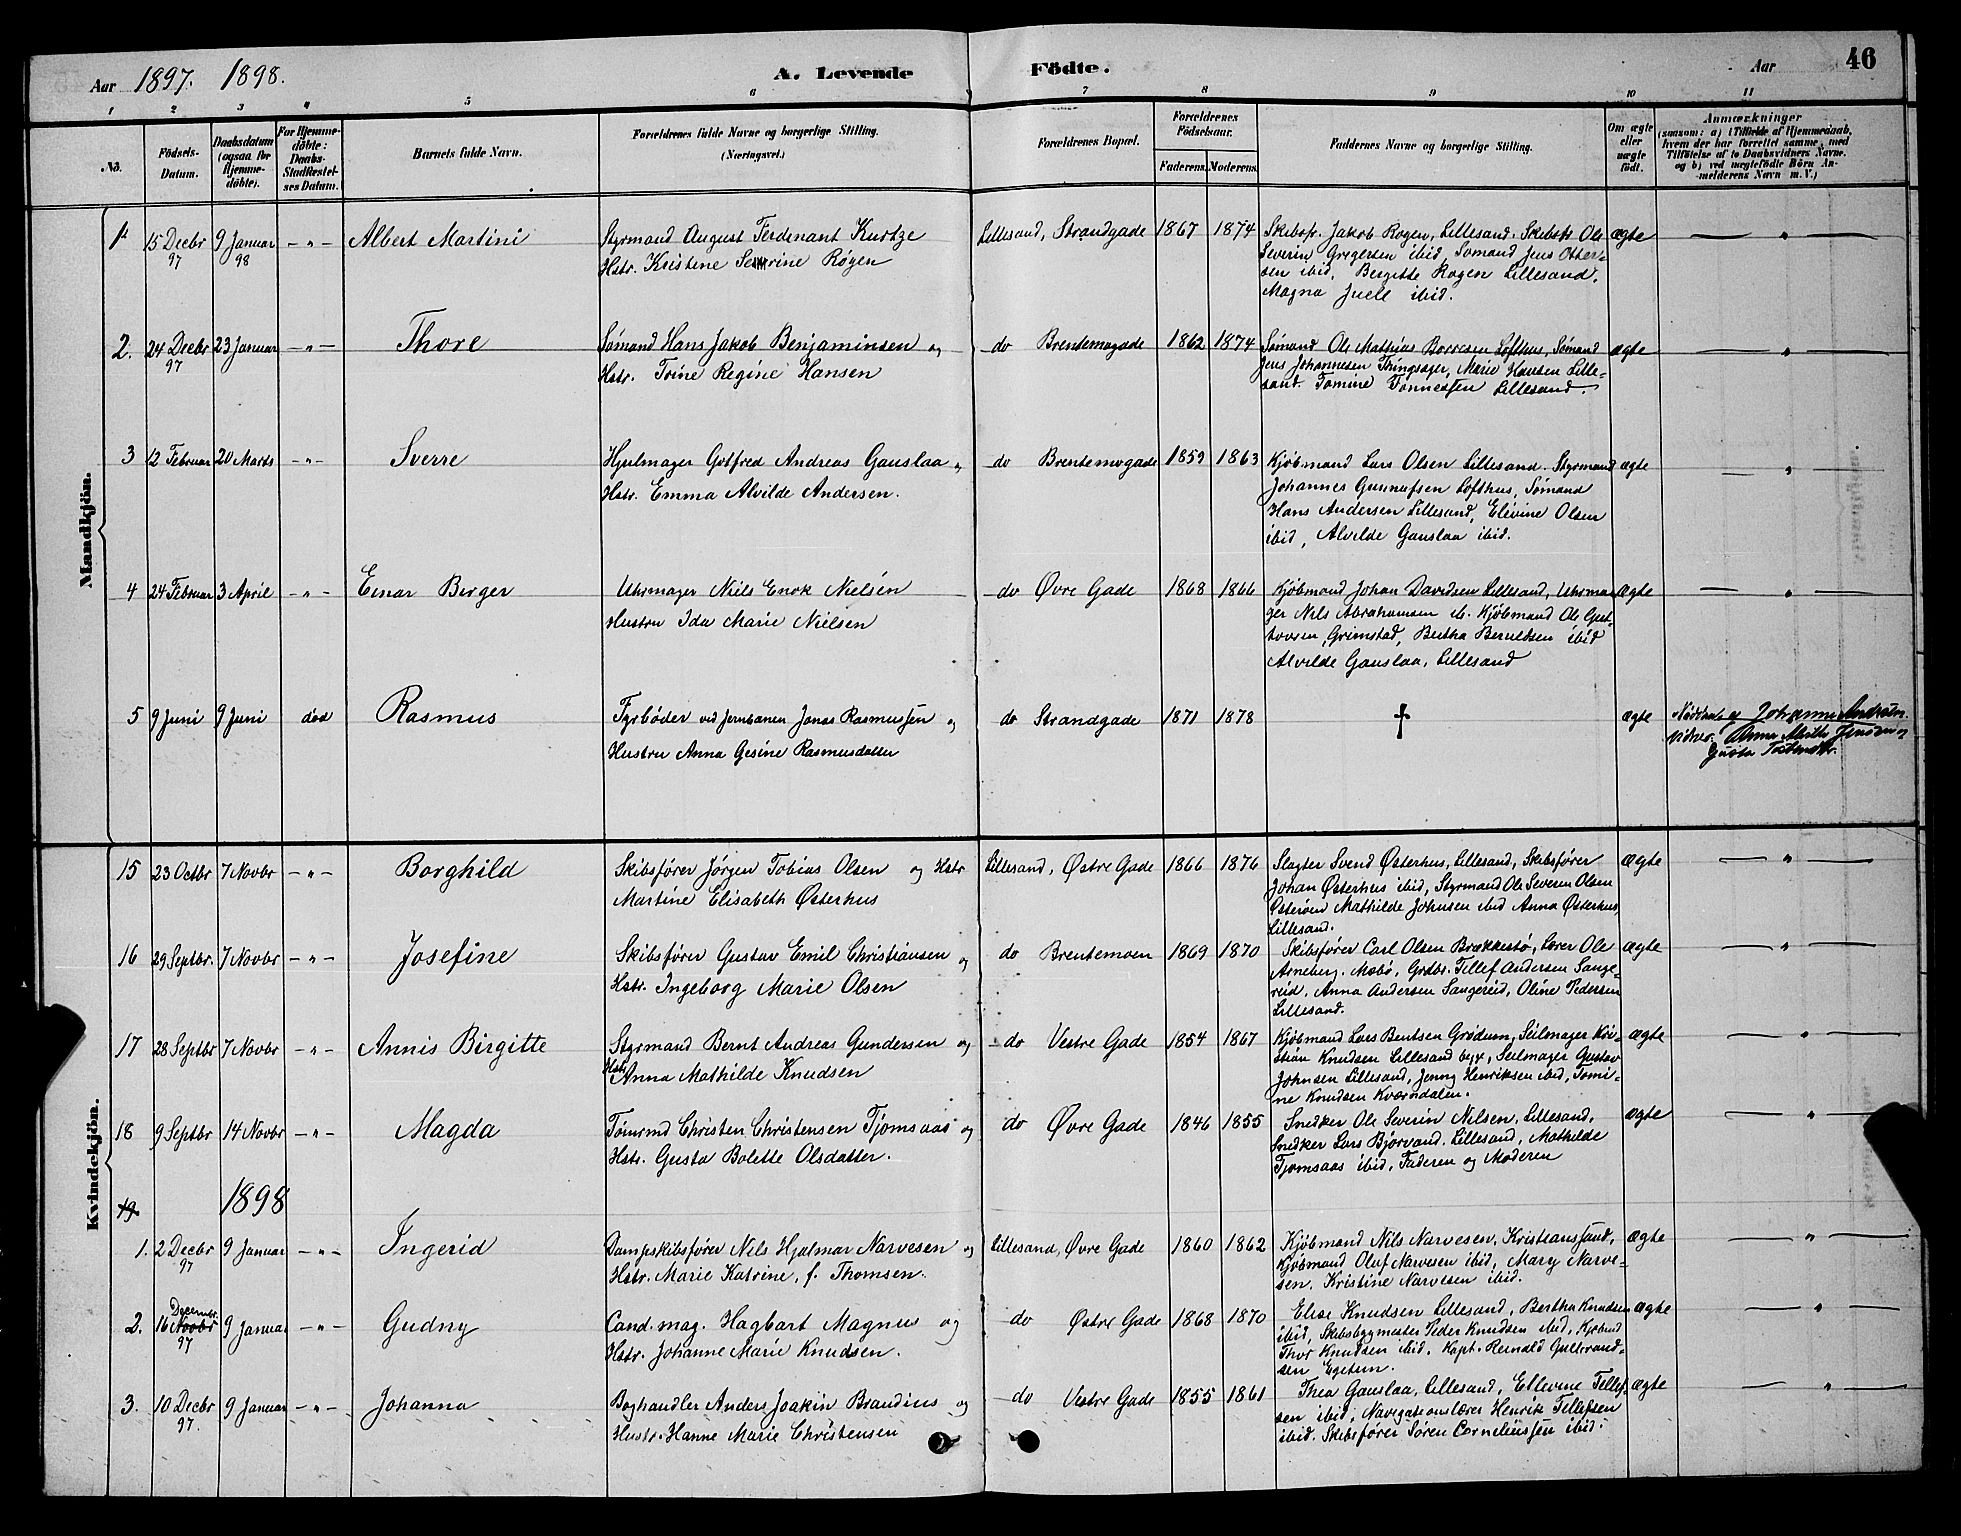 Aar 1897. 1898. A. Levende Födte. Aar 46
1 2 3 4 5 6 7 8 9 10 11
No. Födsels-Datum. Daabsdatum (ogsaa for Hjemme-döbte). For Hjemme-döbte: Daabs-Stadfæstel-ses Datum. Barnets fulde Navn. Forældrenes fulde Navne og borgerlige Stilling. (Næringsvei.) Forældrenes Bopæl. Forældrenes Födselsaar. Faderens. Moderens. Faddernes Navne og borgerlige Stilling. Om ægte eller uægte födt. Anmærkninger
(saasom: a) i Tilfælde af Hjemmedaab,
hvem der har forrettet samme, med
Tilföielse af to Daabsvidners Navne.
og b) ved uægtefödte Börn An-
melderens Navn m. V.)
Mandkjön.
1. 15 Decbr 97 9 Januar 98 — „ — Albert Martini
Styrmand August Ferdenant Kurtze
Hstr. Kristine Severine Røgen
Lillesand, Strandgade 1867 1874
Skibsfr. Jakob Rogen, Lillesand. Skibsfr. Ole
Severin Gregersen ibid, Sømand Jens Otter-
sen ibid, Bergitte Rogen Lillesand,
Magna Juell ibid.
ægte — „ —
2. 24 Decbr 97 23 Januar — „ — Thore
Sømand Hans Jakob Benjaminsen og
Hstr. Trine Regine Hansen
do Brentemogade 1862 1874
Sømand Ole Mathias Borresen Lofthus, Sømand
Jens Johannesen Thingsager, Marie Hansen Lille-
sand. Tomine Tønnessen Lillesand.
ægte — „ —
3 12 Februar 20 Marts — „ — Sverre
Hjulmager Gotfred Andreas Gauslaa og
Hstr. Emma Alvilde Andersen.
do Brentemogade 1859 1863
Kjøbmand Lars Olsen Lillesand. Styrmand
Johannes Gunnufsen Lofthus, Sømand
Hans Andersen Lillesand, Elevine Olsen
ibid, Alvilde Gauslaa ibid.
ægte — „ —
4 24 Februar 3 April — „ — Einar Berger
Uhrmager Niels Enok Nielsen
Hustru Ida Marie Nielsen
do Øvre Gade 1868 1866
Kjøbmand Johan Davidsen Lillesand, Uhrma-
ger Nils Abrahamsen ib. Kjøbmand Ole Gus-
tavsen, Grimstad, Bertha Berntsen ibid
Alvilde Gauslaa, Lillesand
ægte — „ —
5 9 Juni 9 Juni død Rasmus
Fyrbøder ved Jernbanen Jonas Rasmussen og
Hustru Anna Gesine Rasmusdatter
do Strandgade 1871 1878 † ægte
Kvindekjön.
15 23 Octbr 7 Novbr — „ — Borghild
Skibsfører Jørgen Tobias Olsen og Hstr
Martine Elisabeth Østerhus
Lillesand, Østre Gade 1866 1876
Slagter Svend Østerhus, Lillesand, Skibsfører
Johan Østerhus ibid, Styrmand Ole Severin Olsen
Østerøen Mathilde Johnsen ibid Anna Østerhus,
Lillesand.
ægte — „ —
16 29 Septbr. 7 Novbr — „ — Josefine
Skibsfører Gustav Emil Christiansen og
Hstr. Ingeborg Marie Olsen
do Brentemoen 1869 1870
Skibsfører Carl Olsen Brækkestø, Lærer Ole
Arneberg. Møbø, Grdbr. Tellef Andersen Sange-
reid, Anna Andersen Sangereid, Oline Pedersen
Lillesand.
ægte — „ —
17 28 Septbr 7 Novbr — „ — Annis Birgitte
Styrmand Bernt Andreas Gundersen og
Hstr. Anna Mathilde Knudsen
do Vestre Gade 1854 1867
Kjøbmand Lars Bentsen Grødum, Seilmager Kri-
stian Knudsen Lillesand, Seilmager Gustav
Johnsen Lillesand, Jenny Henriksen ibid, Tomi-
ne Knudsen Kværndalen.
ægte — „ —
18 9 Septbr 14 Novbr — „ — Magda
Tømrmd Christen Christensen Tjomsaas og
Hstr. Gusta Bolette Olsdatter.
do Øvre Gade 1846 1855
Snedker Ole Severin Nilsen, Lillesand,
Snedker Lars Bjørvand. Lillesand, Mathilde
Tjomsaas ibid, Faderen og Moderen
ægte — „ —
19 1898
1. 2 Decbr 97 9 Januar — „ — Ingerid
Dampskibsfører Nils Hjalmar Narvesen og
Hstr. Marie Katrine, f. Thomsen.
Lillesand, Øvre Gade 1860 1862
Kjøbmand Nils Narvesen, Kristianssand,
Kjøbmand Oluf Narvesen ibid, Mary Narve-
sen, Kristine Narvesen ibid.
ægte — „ —
2. 16 December Novbr 97 9 Januar — „ — Gudny
Cand. mag. Hagbart Magnus og
Hstr. Johanne Marie Knudsen.
do Østre Gade 1868 1870
Elise Knudsen Lillesand, Bertha Knudsen
ibid, Skibsbygmester Peder Knudsen ibid, Kjøbmd
Thor Knudsen ibid. Kapt. Reinald Gulbrand-
sen Egetun.
ægte — „ —
3. 10 Decbr 97. 9 Januar — „ — Johanna
Boghandler Anders Joakin Brandius og
Hustr. Hanne Marie Christensen
do Vestre Gade 1855 1861
Thea Gauslaa, Lillesand, Ellevine Tellef-
sen ibid, Navigationslærer Henrik Tellefsen
ibid. Skibsfører Søren Corneliussen ibid.
ægte — „ —